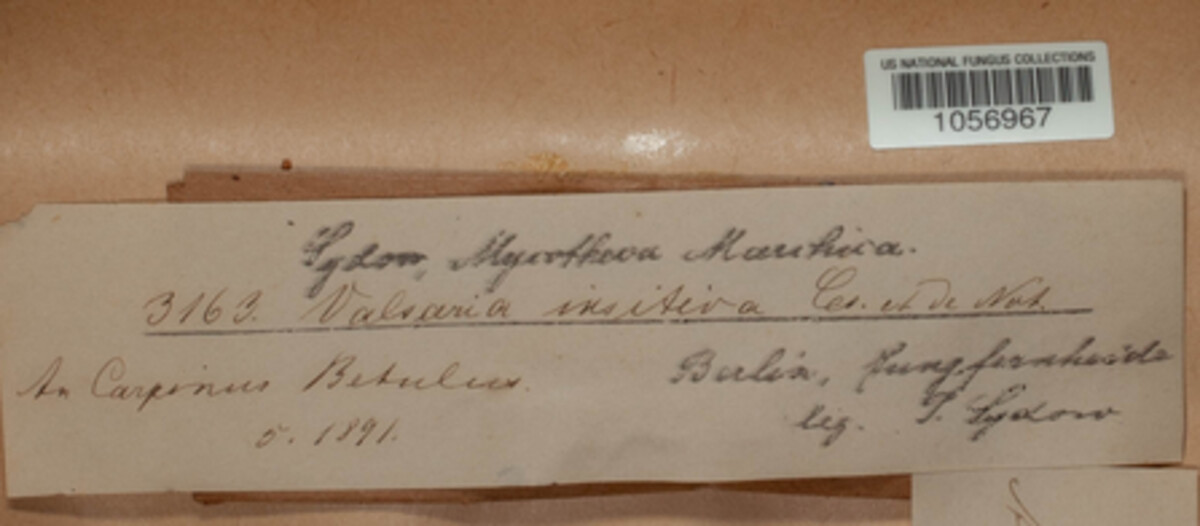 US NATIONAL FUNGUS COLLECTIONS
1056967
Sydow, Mycotheca Marchica.
3163. Valsaria insitiva Ces. et de Not.
An Carpinus Betulus.
Berlin, Jungfernheide
5. 1891.
leg. P. Sydow